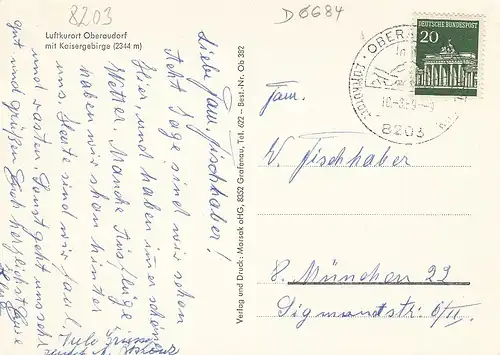 8203
D 6684
Luftkurort Oberaudorf
mit Kaisergebirge (2344 m)
DEUTSCHE BUNDESPOST
20
8203
Verlag und Druck: Morsak oHG, 8352 Grafenau, Tel. 622 – Best.-Nr. Ob 382
Liebe Fam. Fischhaber!
Acht Tage sind wir schon
hier, und haben immer schönes
Wetter. Manche Ausflüge
haben wir schon hinter
uns. Heute sind wir faul
und rasten. Sonst geht uns sehr
gut und grüßen Euch herzlichst Eure
Viele Grüsse
Fam.
W. Fischhaber
8. München 22
Sigmundstr. 6/II